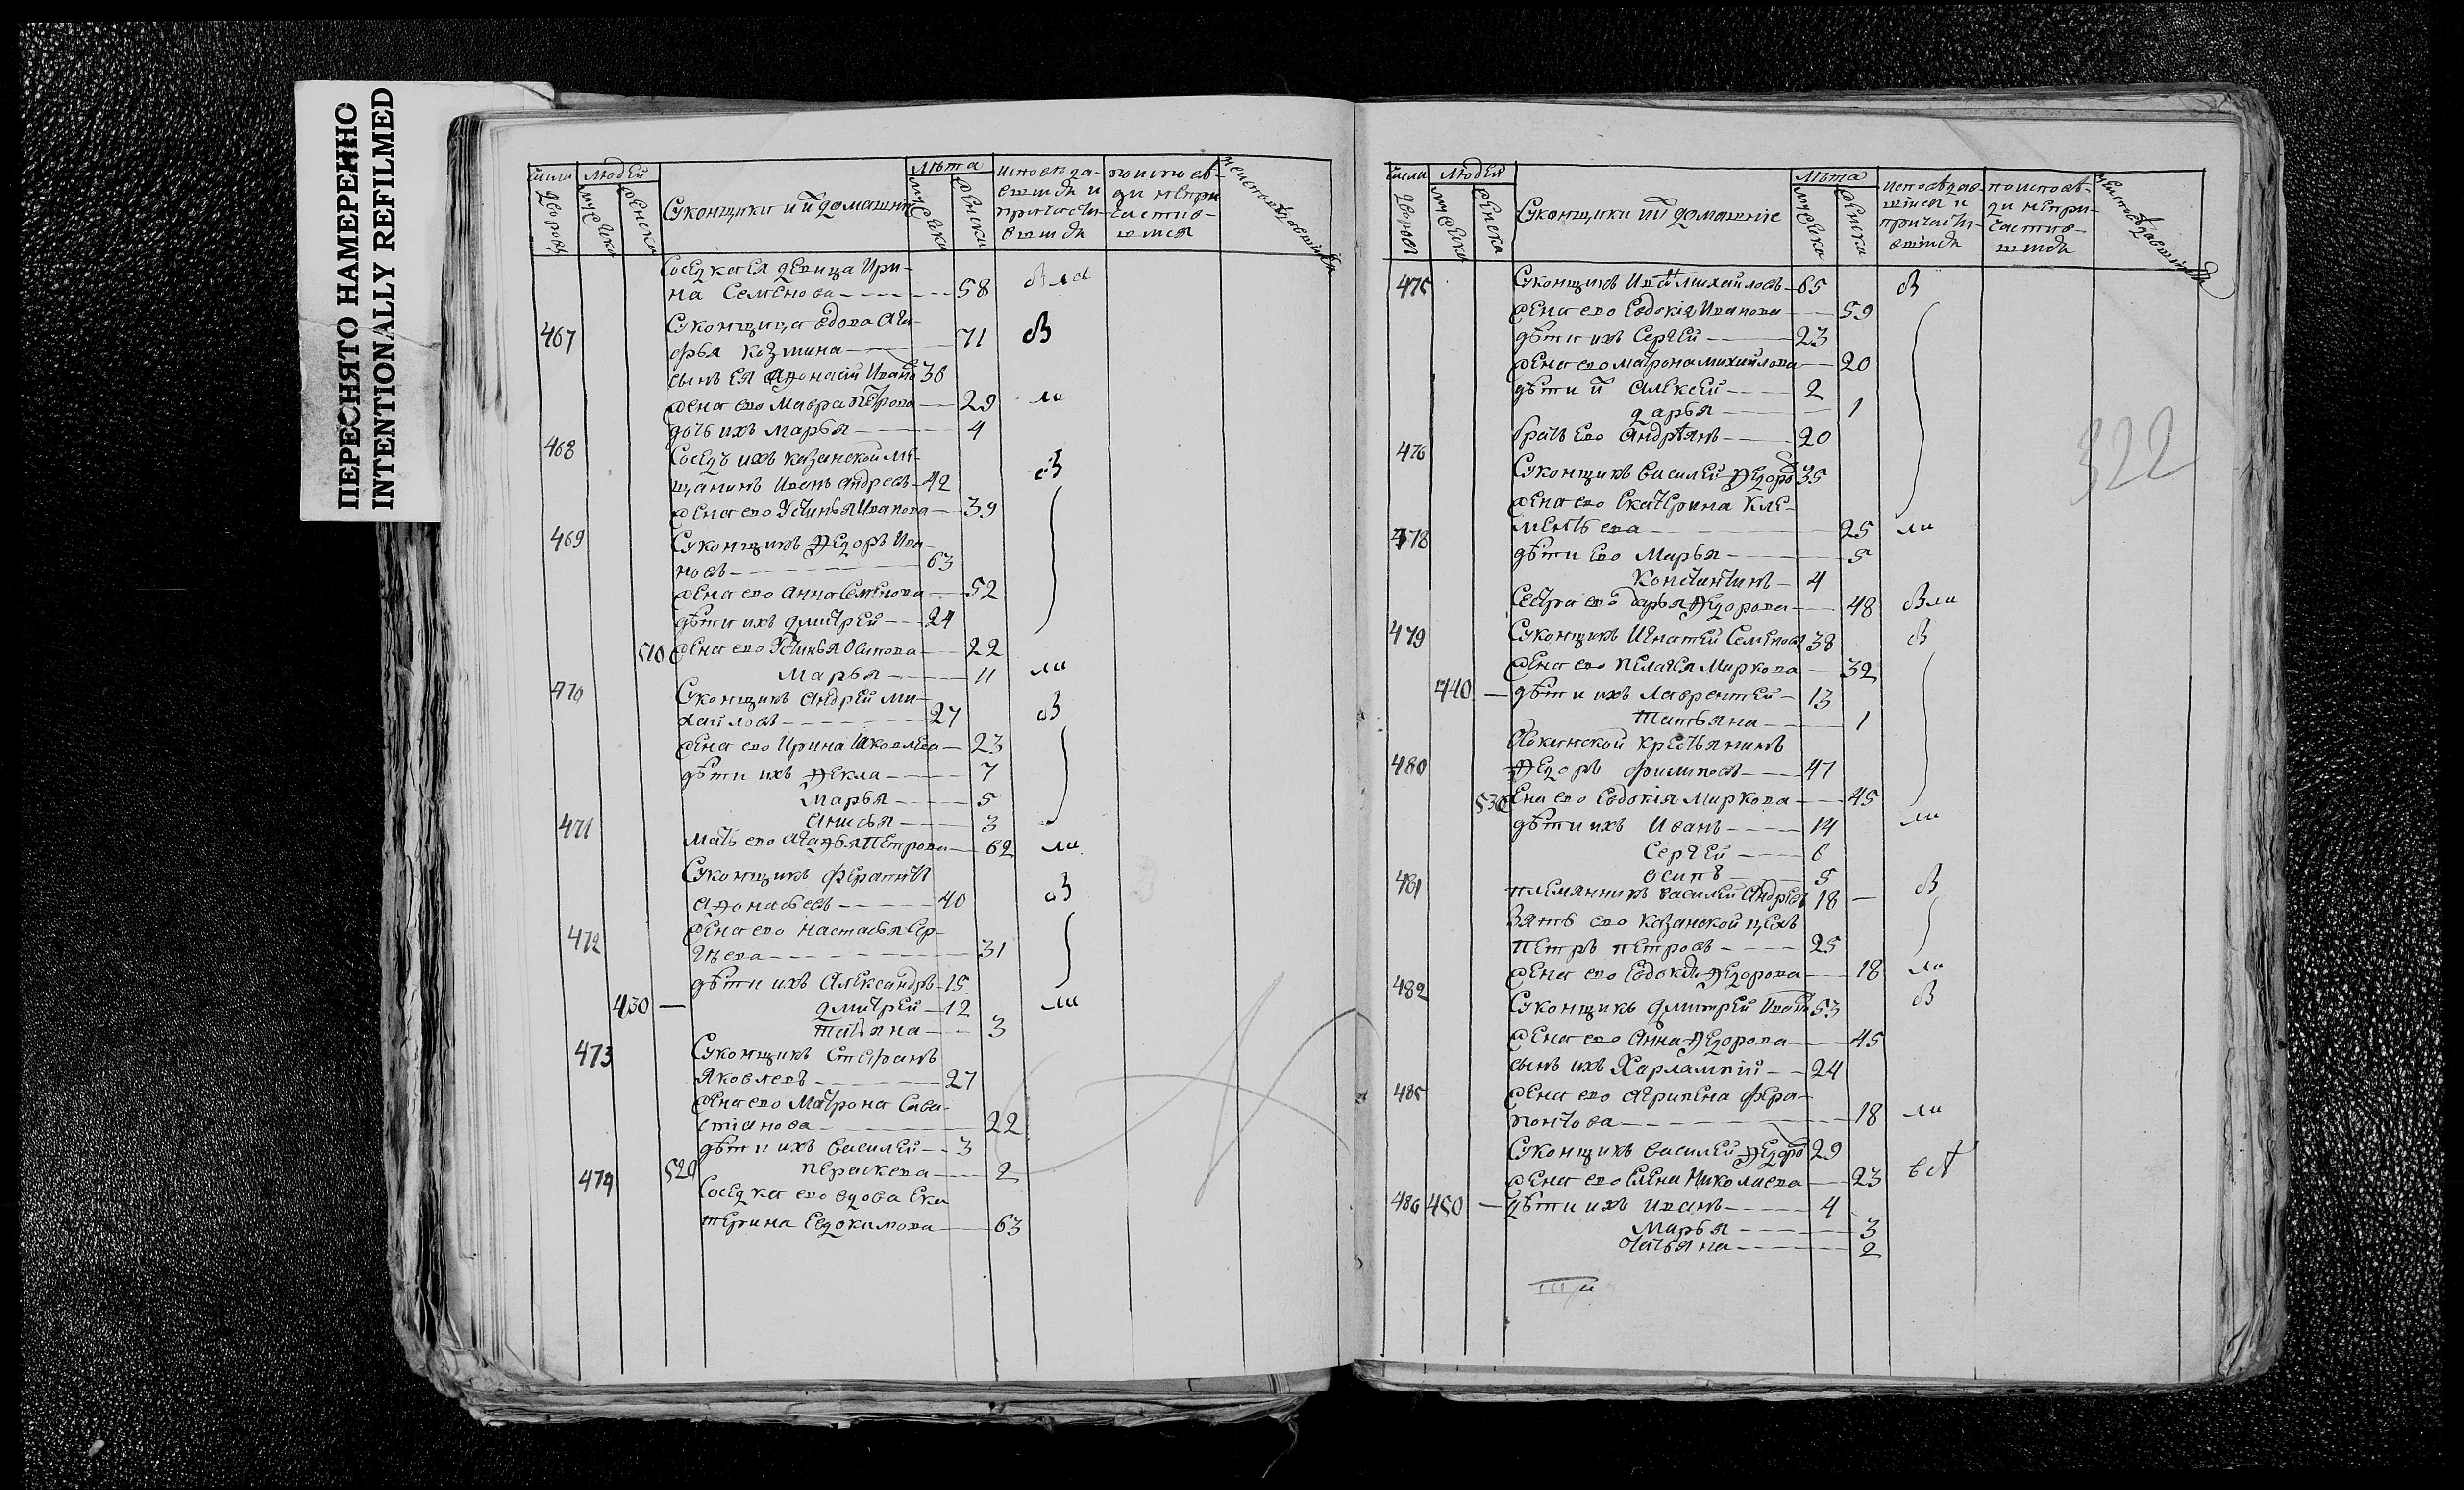 ПЕРЕСНЯТО НАМЕРЕННО
INTENTIONALLY REFILMED
число людей лѣта
дворовъ мужеска женска Суконщики и их домашнии мужеска женска
исповѣдавшихся и причастившихся
по исповѣди непричастившихся
Соседка ея девица Ири-
на Семенова 58
467 Суконщица вдова Ага-
фья Козмина 71 В
сынъ ея Афонасій Ивано 36
жена ево Мавра Петрова 29
дочь ихъ Марья 4
468 Соседъ ихъ казанской ме-
щанинъ Иванъ Андреевъ 42 В
жена ево Устинья Иванова 39
469 Суконщикъ Ѳедоръ Ива-
новъ 63
жена ево Анна Семенова 52
дѣти ихъ Дмитрей 24
510 жена ево Устинья Осипова 22
Марья 11
470 Суконщикъ Андрей Ми-
хайловъ 27 В
жена ево Ирина Яковлева 23
дѣти ихъ Ѳекла 7
Марья 5
Анисья 3
471 Мать ево Агафья Петрова 62
Суконщикъ
Афонасьевъ 40 В
472 жена ево Настасья Сер-
гѣева 31
дѣти ихъ Александръ 15
430 Дмитрей 12
Татьяна 3
473 Суконщикъ Стефанъ
Яковлевъ 27
жена ево Матрона Сава-
стіанова 22
дѣти ихъ Василей 3
520 Параскева 2
474 Соседка ево вдова Ека
терина Евдокимова 63
число людей лѣта
дворовъ мужеска женска Суконщики и их домашніе мужеска женска
исповѣдавшіися и причастившихся
по исповѣди непричастившихся
475 Суконщикъ Ив Михайловъ 65 В
жена ево Евдокія Иванова 59
дѣти ихъ Сергей 23
жена ево Матрона Михайлова 20
дѣти их Алексей 2
Дарья 1
братъ ево Андреянъ 20
476 Суконщикъ Василей Ѳедоро 35
жена ево Екатерина Кле-
ментьева 25
478 дѣти ево Марья 5
Константинъ 4
Сестра ево Дарья Ѳедорова 48
479 Суконщикъ Игнатей Семеновъ 38 В
жена ево Пелагея Маркова 32
440 дѣти ихъ Лаврентей 13
Татьяна 1
крестьянинъ
480 Ѳедоръ Филиповъ 47
530 жена ево Евдокія Маркова 45
дѣти ихъ Иванъ 14
Сергей 6
Осипъ 5
481 племянникъ Василей Андреев 18 В
Зять ево казанской цехъ
Петръ Петровъ 25
жена ево Евдокія Ѳедорова 18
482 Суконщикъ Дмитрей Ивано 53 В
жена ево Анна Ѳедорова 45
сынъ ихъ Харлампій 24
485 жена ево Агрипена Фера-
понтова 18
Суконщикъ Василей Ѳедоро 29
жена ево Елена Николаева 23
486 450 дѣти ихъ Иванъ 4
Марья 3
Татьяна 2
322